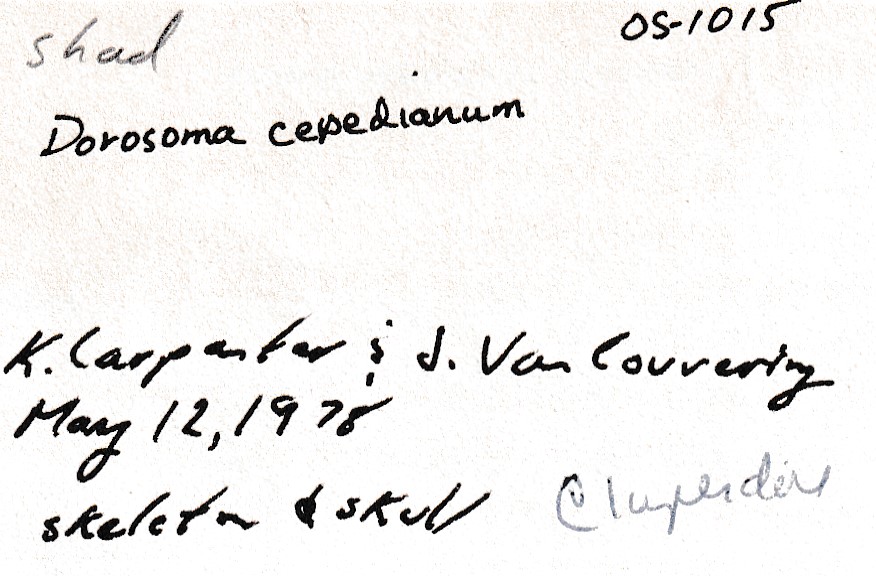 shad
OS-1015
Dorosoma cepedianum
K. Carpenter & J. Van Couvering
May 12, 1978
skeleton & skull
Clupeidae